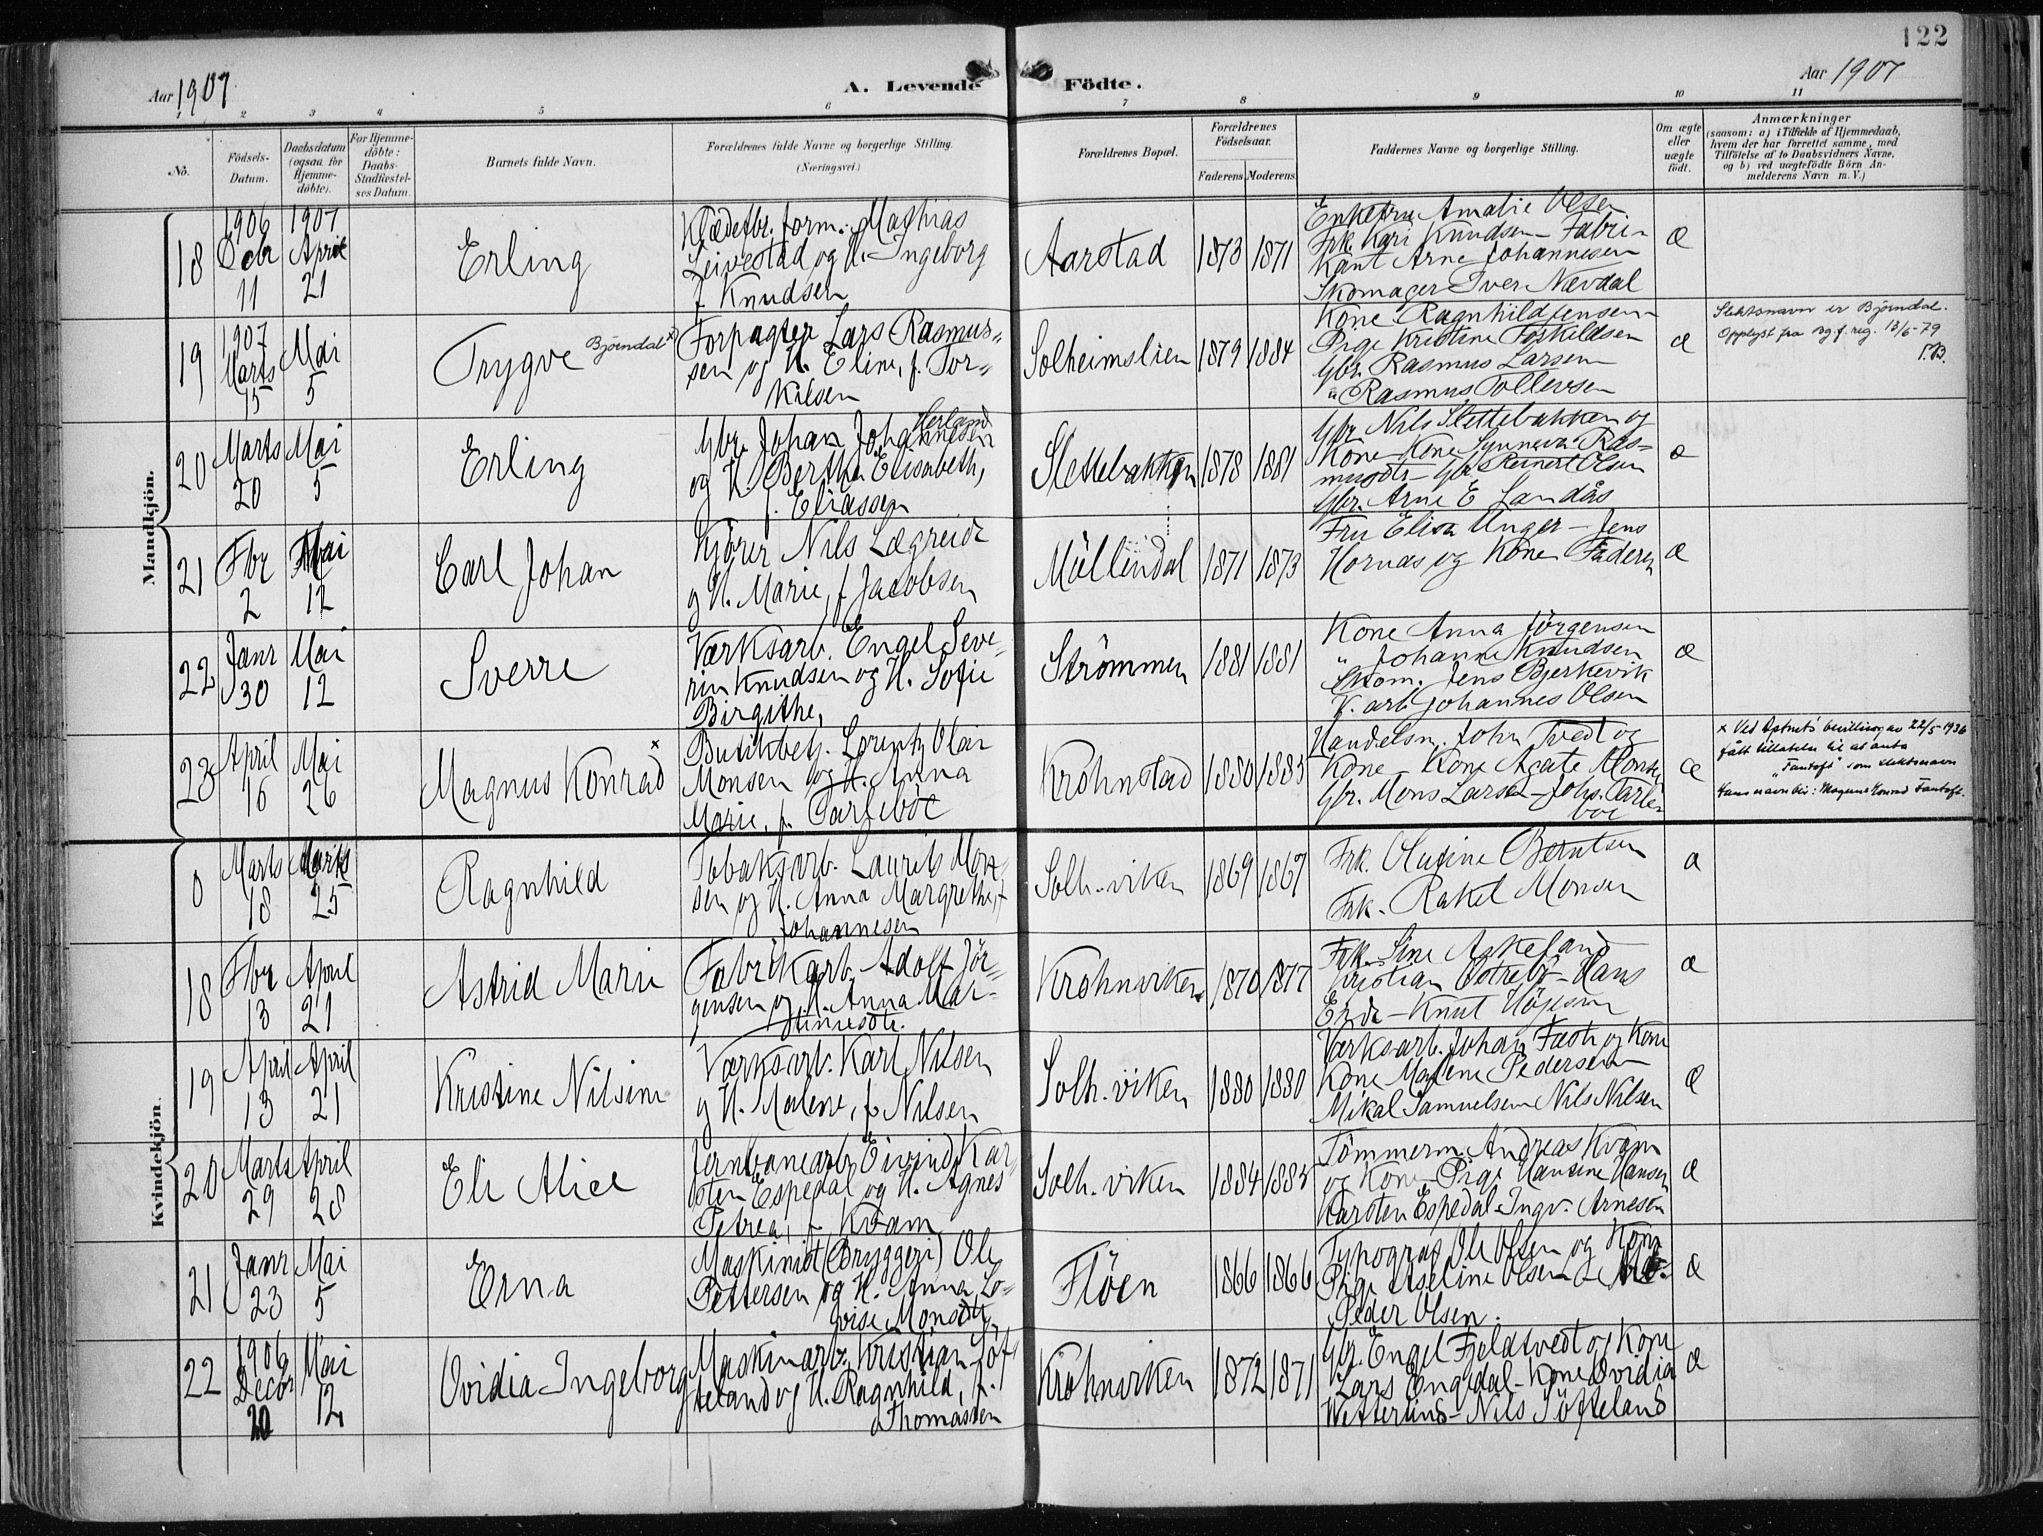 122
Aar 1907
A. Levende Födte.
Aar 1907
1 2 3 4 5 6 7 8 9 10 11
No.
Födsels-Datum.
Daabsdatum (ogsaa för Hjemmedöbte).
For Hjemmedöbte: Daabs-Stadfæstelses Datum.
Barnets fulde Navn.
Forældrenes fulde Navne og borgerlige Stilling. (Næringsvei.)
Forældrenes Bopæl.
Forældrenes Födselsaar.
Faderens. Moderens.
Faddernes Navne og borgerlige Stilling.
Om ægte eller uægte födt.
Anmærkninger
(saasom: a) i Tilfælde af Hjemmedaab, hvem der har forrettet samme, med Tilföielse af to Daabsvidners Navne, og b) ved uægtefödte Börn Anmelderens Navn m. V.)
Mandkjön.
18
1906 Octr 11
1907 April 21
Erling
Klædefbr. form. Mathias
Leivestad og H. Ingeborg
f. Knudsen
Aarstad
1873 1871
Enkefru Amalie Olsen
Frk. Kari Knudsen - Fabri-
kant Arne Johannesen
Skomager Iver Nævdal
æ
19
1907 Marts 15
Mai 5
Trygve Bjørndal x
Forpagter Lars Rasmus-
sen og H. Eline, f. Tor-
kilsen
Solheimslien
1879 1884
Kone Ragnhild Jensen
Pige Kristine Torkildsen
Gbr. Rasmus Larsen
" Rasmus Tollevsen
æ
Slektsnavn er Bjørndal.
Opplyst fra 13/6-79
20
Marts 20
Mai 5
Erling
Gbr. Johan Johannesen Herland
og H. Bertha Elisabeth,
f. Eliassen
Slettebakken
1878 1881
Gbr Nils Slettebakken og
Kone Kone Synneva Ras-
musdtr - Gbr Reinert Olsen
Gbr. Arne E Landås
æ
21
Fbr 2
Mai 12
Carl Johan
Kjører Nils Lægreid
og H. Marie, f Jacobsen
Möllendal
1871 1873
Fru Elisa Unger - Jens
Hornas og Kone Faderen
æ
22
Janr 30
Mai 12
Sverre
Værksarb. Engel Seve-
rin Knudsen og H. Sofie
Birgithe,
Strömmen
1881 1881
Kone Anna Jörgensen
" Johanne Knudsen
Skom. Jens Bjerkevik
V. arb Johannes Olsen
æ
23
April 16
Mai 26
Magnus Konrad x
Butikbetj. Lorentz Olai
Monsen og H. Anna
Marie, f. Tarlebøe
Krohnstad
1880 1885
Handelsm. John Tvedt og
Kone - Kone Agate Monsen
Gbr. Mons Larsen - Johs. Tarle-
boe
æ
x Ved bevilling av 22/5-1936
fått tillatelse til at anta
"Fantoft" som slektsnavn
Hans navn blir: Magnus Konrad Fantoft.
Kvindekjön.
0
Marts 18
Marts 25
Ragnhild
Tobaksarb. Laurits Mon-
sen og H. Anna Margrethe, f
Johannesen
Solh.viken
1869 1867
Frk. Olufine Berntsen
Frk. Rakel Monsen
æ
18
Fbr 13
April 21
Astrid Marie
Fabrikarb. Adolf Jör-
gensen og H. Anna Mar-
tinusdtr.
Krohnviken
1870 1877
Frk. Sine Askeland
Kristian - Hans
Knut
æ
19
April 13
April 21
Kristine Nilsine
Værksarb. Karl Nilsen
og H. Malene, f Nilsen
Solh.viken
1880 1880
Værksarb. Johan og Kone
Kone Malene Pedersen
Mikal Samuelsen Nils Nilsen
æ
20
Marts 29
April 28
Eli Alice
Jernbanearb. Eivind Kar-
sten Espedal og H. Agnes
Petrea, f Kvam
Solh.viken
1884 1885
Tömmerm. Andreas Kvam
og Kone - Pige Hansine Hansen
Karsten Espedal - Ingv. Arnesen
æ
21
Janr 23
Mai 5
Erna
Maskinist (Bryggeri) Ole
Pettersen og H. Anna Lo-
vise Monsdtr
Flöen
1866 1866
Typograf Ole Olsen og Kone
Pige Olsen -
Peder Olsen.
æ
22
1906 Decbr 20
Mai 12
Ovidia Ingeborg
Maskinarb. Kristian Söf-
teland og H. Ragnhild, f.
Thomassen
Krohnviken
1872 1871
Gbr. Engel Fjeldtvedt og Kone
Lars Engedal - Kone Ovidia
- Nils Söfteland
æ